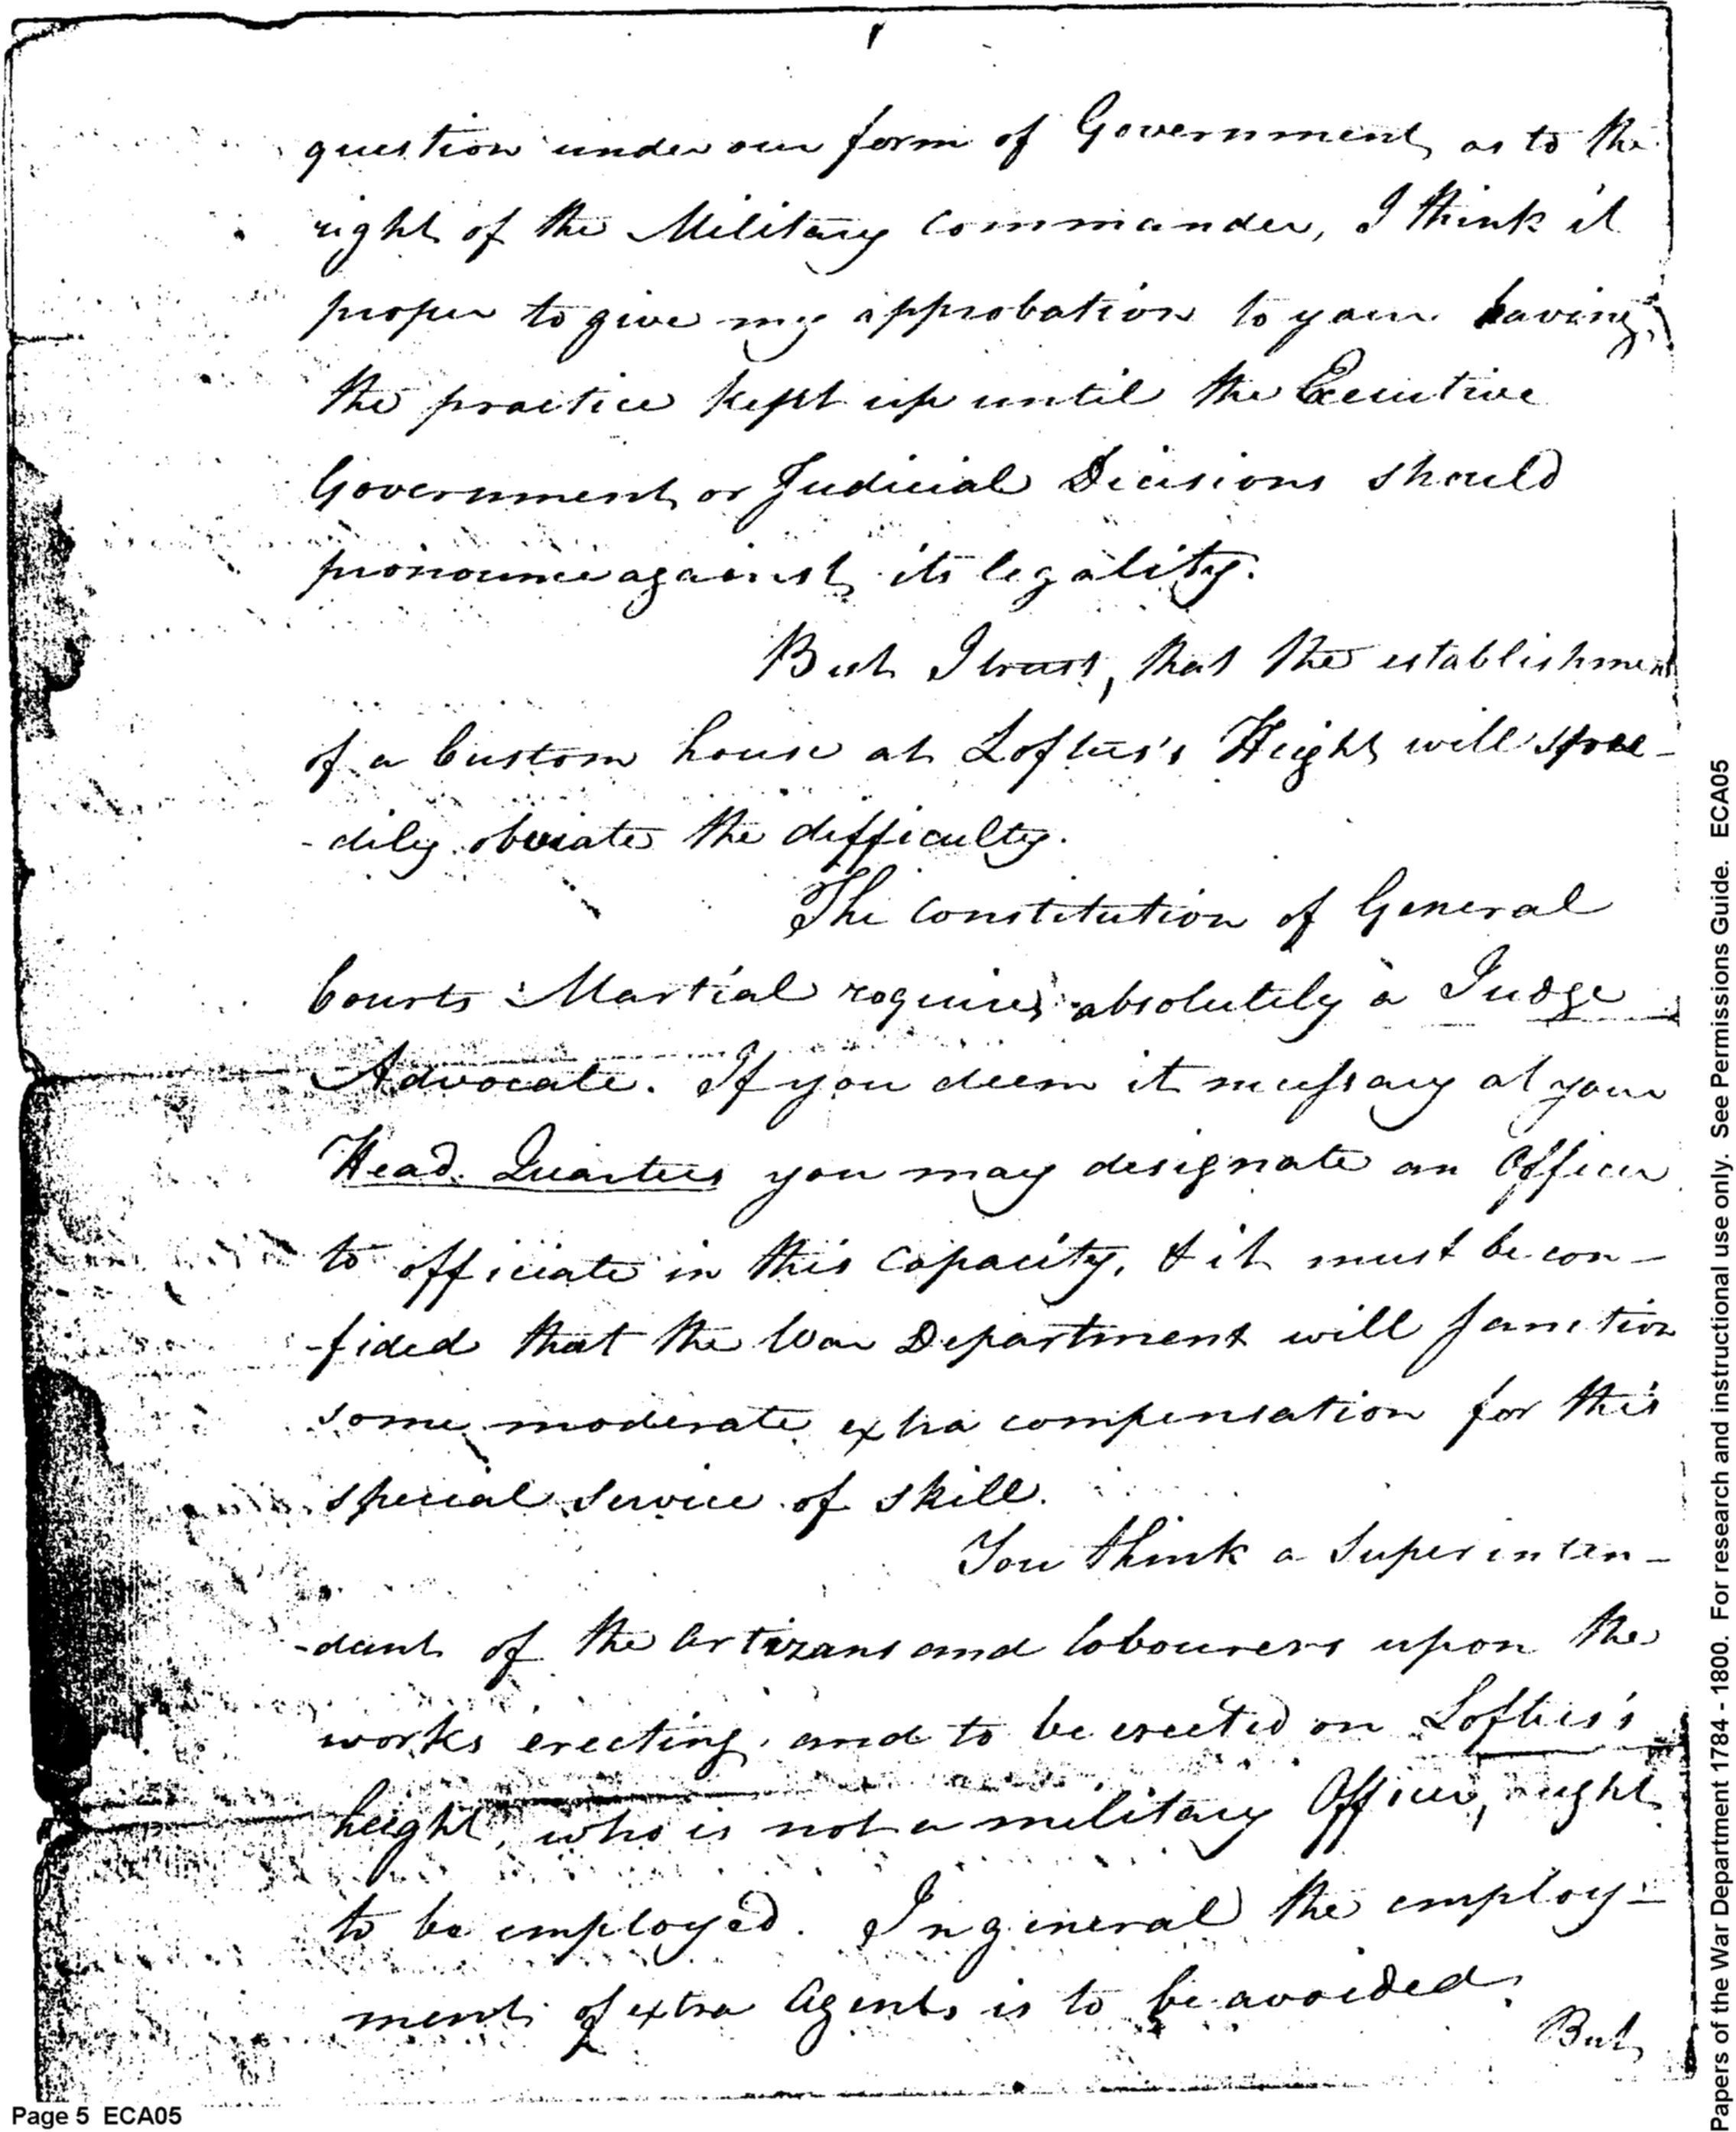 question under our form of Government, as to the
right of the Military Commander, I think it
proper to give my approbation to your having
the practice kept up until the Executive
Government or Judicial Decisions should
pronounce against its legality.
But I trust, that the establishment
of a Custom house at Loftus's Height will spee-
-dily obviate the difficulty.
The Constitution of General
Courts Martial requires absolutely a Judge
Advocate. If you deem it necessary at your
Head. Quarters you may designate an Officer
to officiate in this Capacity, & it must be con-
-fided that the War Department will sanction
some moderate extra compensation for this
special service of skill.
You think a Superinten-
-dant of the Artizans and labourers upon the
works erecting, and to be erected on Loftus's
height, who is not a military Officer, ought
to be employed. In general the employ-
ment of extra Agents is to be avoided.
But
Page 5 ECA05
Papers of the War Department 1784 - 1800. For research and instructional use only. See Permissions Guide. ECA05